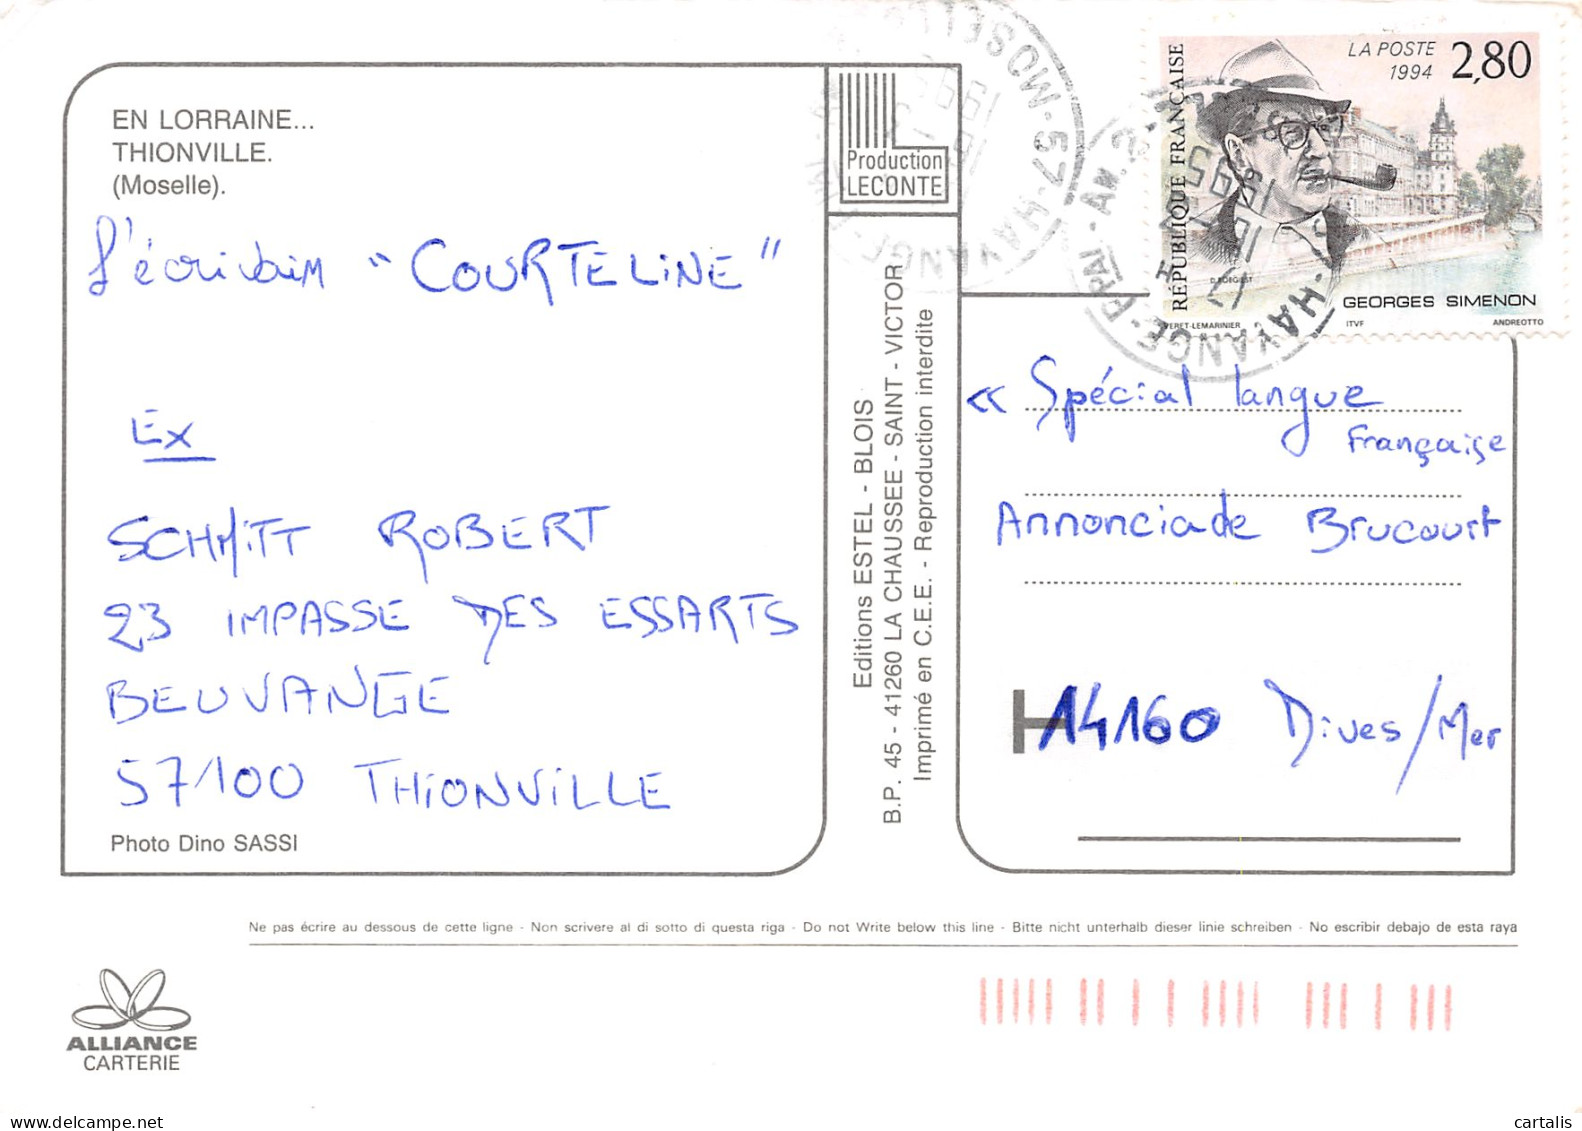 EN LORRAINE...
THIONVILLE.
(Moselle).
L'écrivain “COURTELINE”
Ex
SCHMITT ROBERT
23 IMPASSE DES ESSARTS
BEUVANGE
57100 THIONVILLE
Photo Dino SASSI
Production
LECONTE
Editions ESTEL - BLOIS
B.P. 45 - 41260 LA CHAUSSEE - SAINT - VICTOR
Imprimé en C.E.E. - Reproduction interdite
RÉPUBLIQUE FRANÇAISE
LA POSTE
1994
2,80
GEORGES SIMENON
VERET-LEMARINIER
ITVF
ANDREOTTO
57-HAYANGE
MOSELLE
1995
HAYANGE-PPAL
1995
« Spécial langue
Française
Annonciade Brucourt
14160 Dives/Mer
Ne pas écrire au dessous de cette ligne - Non scrivere al di sotto di questa riga - Do not Write below this line - Bitte nicht unterhalb dieser linie schreiben - No escribir debajo de esta raya
ALLIANCE
CARTERIE
cartalis